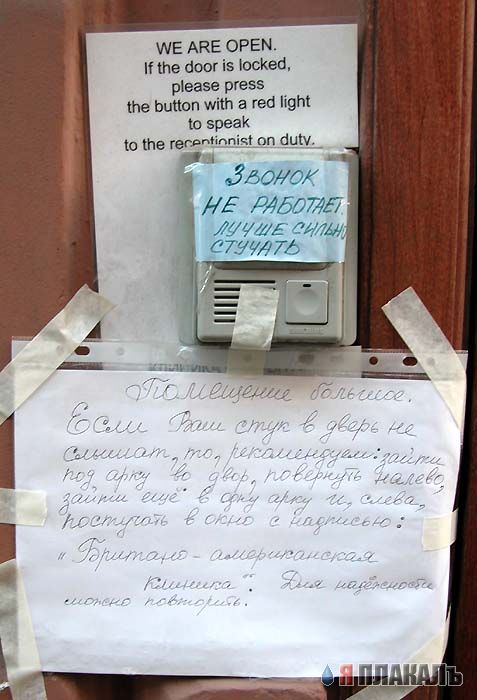 WE ARE OPEN.
If the door is locked,
please press
the button with a red light
to speak
to the receptionist on duty.
ЗВОНОК
НЕ РАБОТАЕТ.
ЛУЧШЕ СИЛЬНО
СТУЧАТЬ
Помещение большое.
Если Ваш стук в дверь не
слышат, то, рекомендуем: зайти
под арку во двор, повернуть налево,
зайти ещё в одну арку и, слева,
постучать в окно с надписью:
"Британо-американская
клиника". Для надёжности
можно повторить.
Я ПЛАКАЛЪ